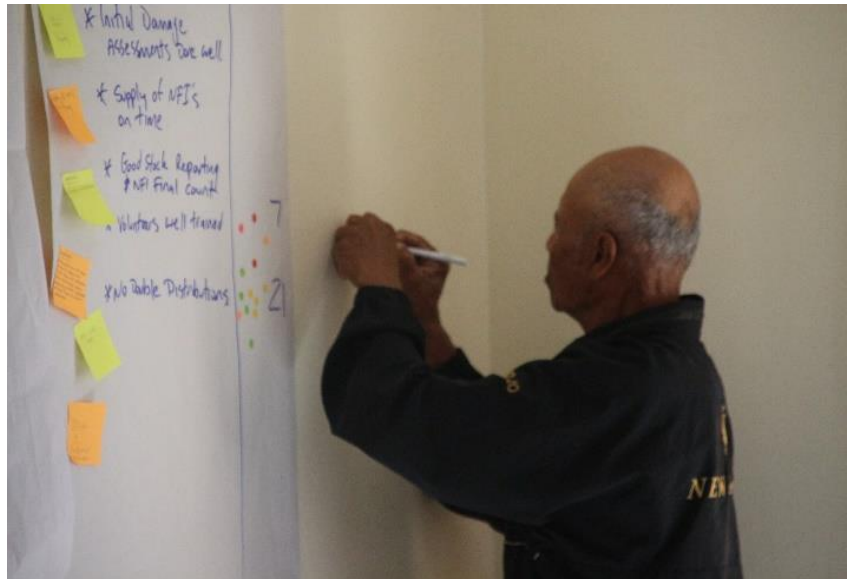 * Initial Damage
Assessments Done well
* Supply of NFI's
on time
* Good Stock Reporting
& NFI Final count
* Voluntors well trained
7
* No Double Distributions
21
NEW